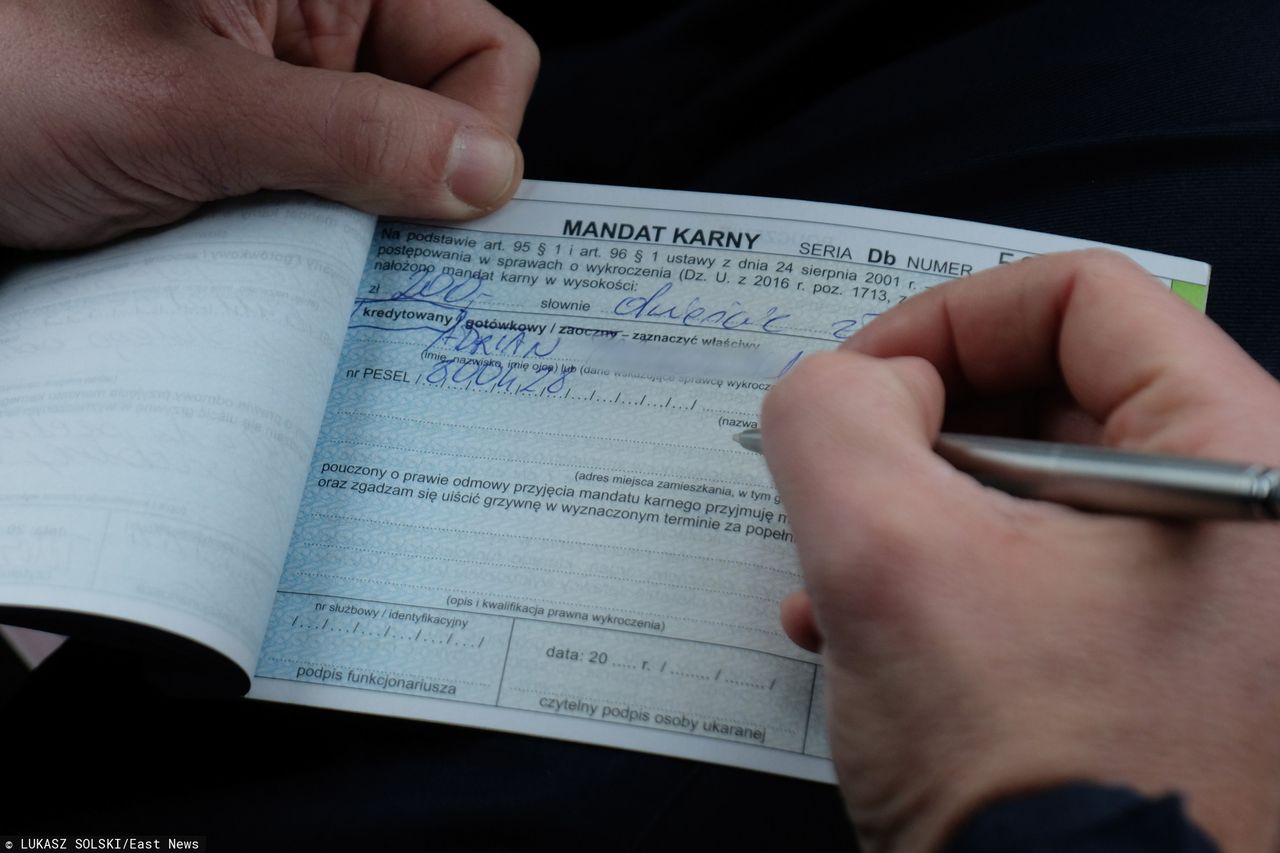 MANDAT KARNY SERIA Db NUMER
Na podstawie art. 95 § 1 i art. 96 § 1 ustawy z dnia 24 sierpnia 2001 r. –
postępowania w sprawach o wykroczenia (Dz. U. z 2016 r. poz. 1713, z
nałożono mandat karny w wysokości:
zł 200,- słownie dwieście zł
kredytowany / gotówkowy / zaoczny – zaznaczyć właściwy
ADRIAN
(imię, nazwisko, imię ojca) lub (dane wskazujące sprawcę wykrocz
nr PESEL
(nazwa
(adres miejsca zamieszkania, w tym g
pouczony o prawie odmowy przyjęcia mandatu karnego przyjmuję m
oraz zgadzam się uiścić grzywnę w wyznaczonym terminie za popełn
(opis i kwalifikacja prawna wykroczenia)
nr służbowy / identyfikacyjny
/...../...../...../...../...../...../
podpis funkcjonariusza
data: 20 ..... r. / ....... / ....... /
czytelny podpis osoby ukaranej
© LUKASZ SOLSKI/East News